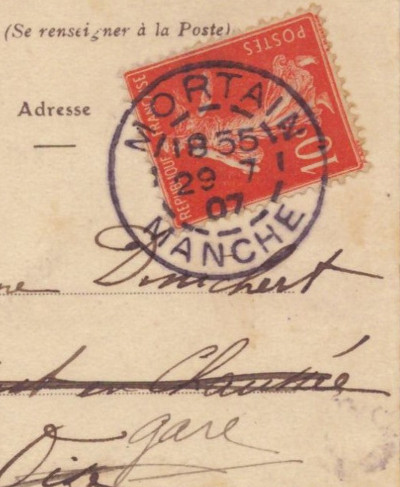 (Se renseigner à la Poste)
Adresse
POSTES
REPUBLIQUE FRANÇAISE
10
MORTAIN
18 55
29 7
07
MANCHE
en Chaussée
gare
Oise